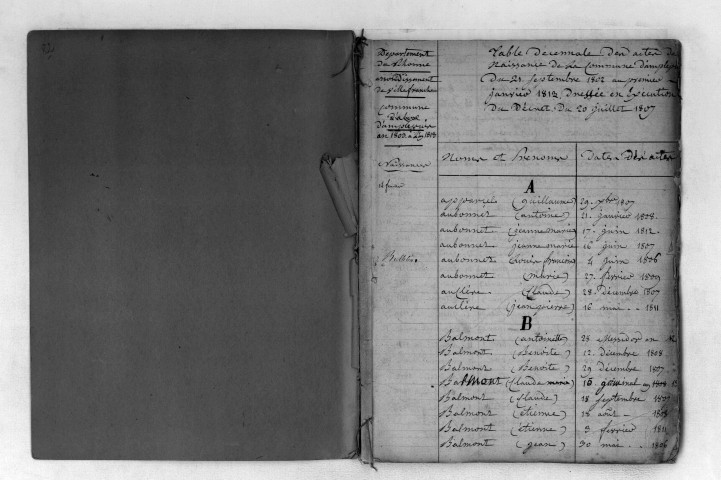 Departement
du Rhonne
arrondissement
de villefranche
commune
D'amplepuis
an 1803 a 1813
Naissances
Table Decennale Des actes de
Naissance de La Commune d'amplep
Du 21 Septembre 1802 au premier
janvier 1813 Dressée en Execution
du Décret Du 20 juillet 1807
Noms et Prenoms Dates Des actes
A
apparcel (guillaume) 29 xbre 1807
aubonnet (antoine) 21 janvier 1808
aubonnet (jeanne marie) 17 juin 1812
aubonnet jeanne marie 16 juin 1807
aubonnet 4 juin 1806
aubonnet (marie) 27 fevrier 1809
auclere (Claude) 28 décembre 1807
auclere (jean pierre) 16 mai 1811
B
Balmont (antoinette) 28 Messidor an
Balmont (Benoite) 12 décembre 1808
Balmont (Benoite) 29 décembre 1807
Balmont (Claude marie) 16 germinal
Balmont (Claude) 18 Septembre 1807
Balmont (etienne) 18 août 1808
Balmont (etienne) 3 fevrier 1811
Balmont (jean) 30 mai 1806